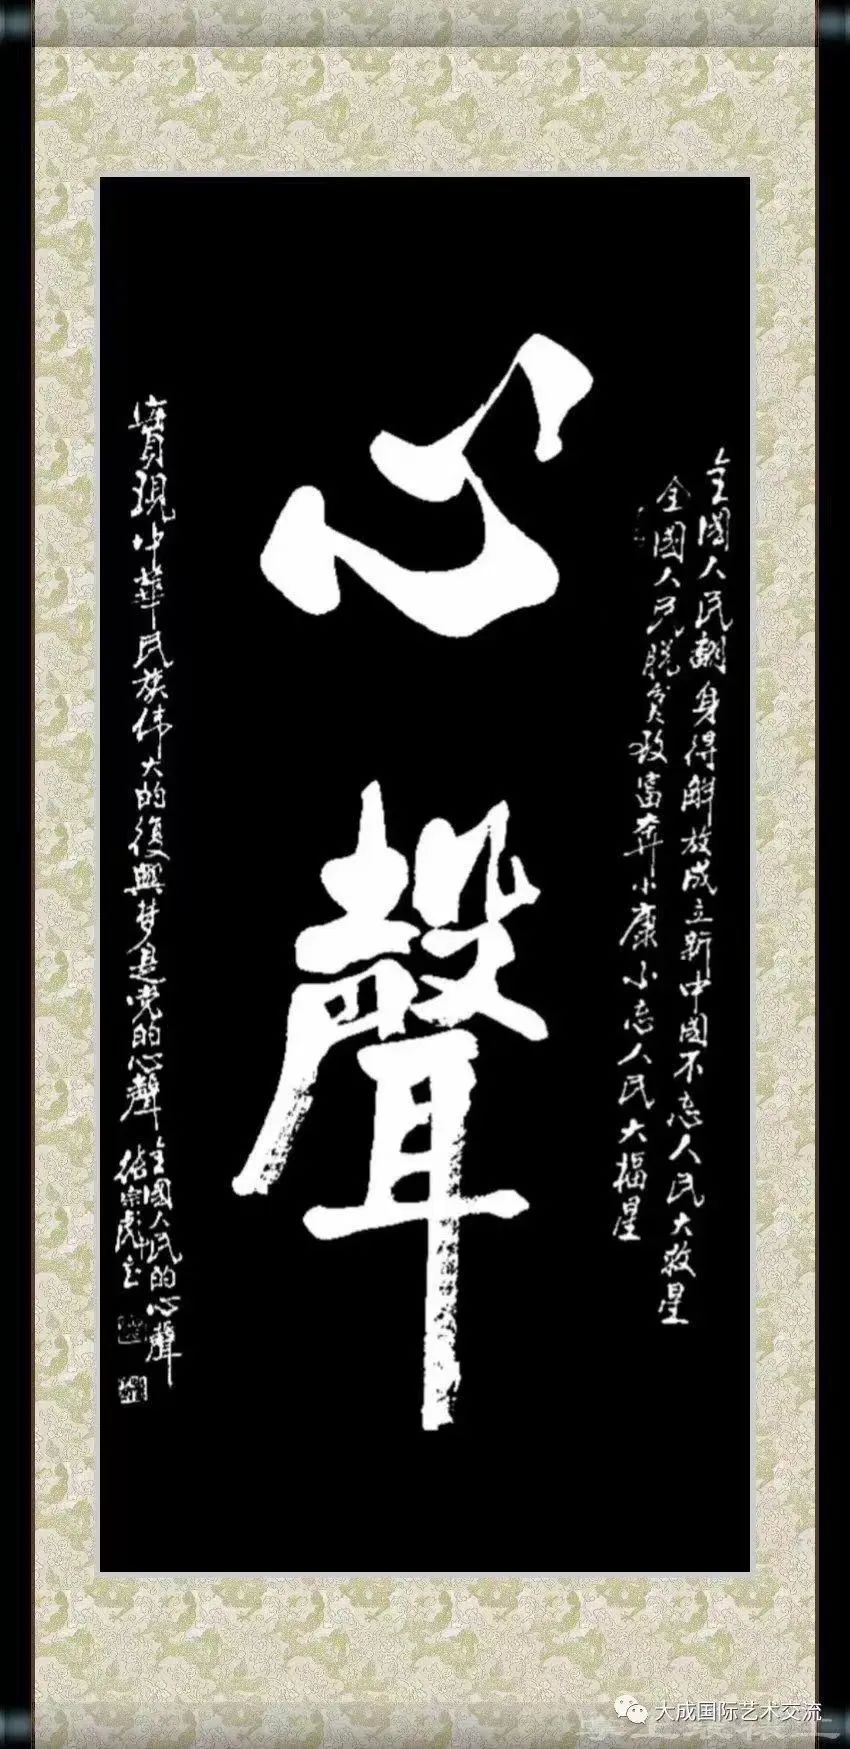 心聲
全國人民翻身得解放成立新中國不忘人民大救星
全國人民脱贫致富奔小康不忘人民大福星
實現中華民族伟大的復興梦是党的心聲
全國人民的心聲
宗彪
大成国际艺术交流